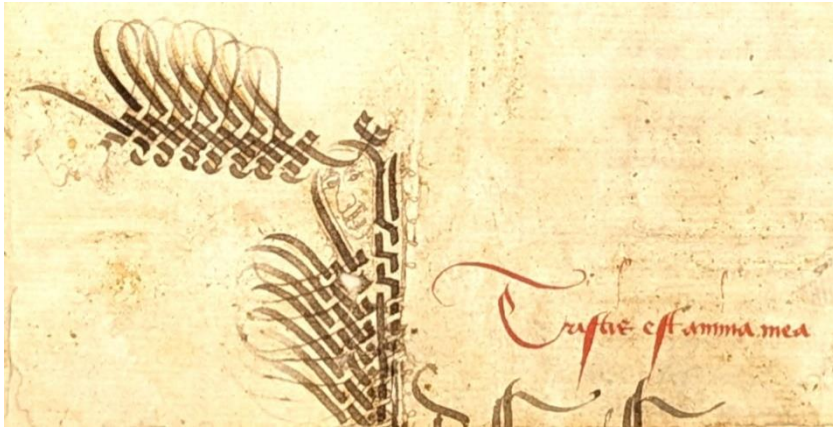 Tristis est anima mea